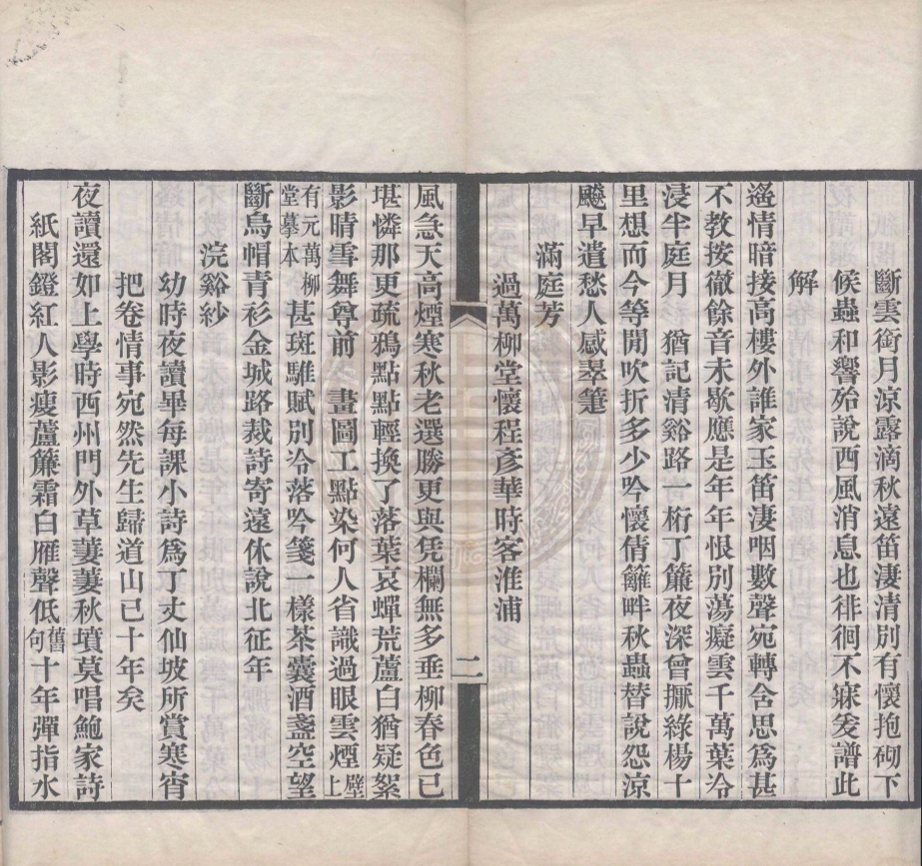 斷雲銜月涼露滴秋遠笛淒清別有懷抱砌下
候蟲和響殆說西風消息也徘徊不寐爰譜此
解
遙情暗接高樓外誰家玉笛淒咽數聲宛轉含思爲甚
不教按徹餘音未歇應是年年恨別蕩癡雲千萬葉冷
浸半庭月　猶記清谿路一桁丁簾夜深曾擫綠楊十
里想而今等閒吹折多少吟懷倩籬畔秋蟲替說怨涼
飇早遣愁人感翠箑
滿庭芳
過萬柳堂懷程彥華時客淮浦
二
風急天高煙寒秋老選勝更與凭欄無多垂柳春色已
堪憐那更疏鴉點點輕換了落葉哀蟬荒蘆白猶疑絮
影晴雪舞尊前　畫圖工點染何人省識過眼雲煙壁上
有元萬柳堂摹本甚斑騅賦別冷落吟箋一樣茶囊酒盞空望
斷烏帽青衫金城路裁詩寄遠休說北征年
浣谿紗
幼時夜讀畢每課小詩爲丁丈仙坡所賞寒宵
把卷情事宛然先生歸道山已十年矣
夜讀還如上學時西州門外草萋萋秋墳莫唱鮑家詩
紙閣鐙紅人影瘦蘆簾霜白雁聲低舊句十年彈指水